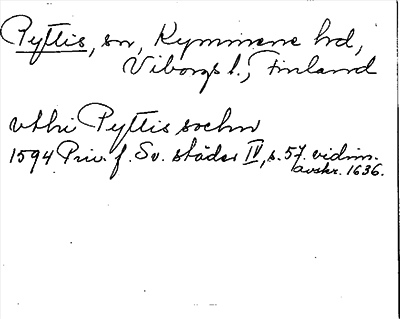 Pyttis, sn, Kymmene hd,
Viborgs l., Finland
vthi Pyttis sochn
1594 Priv. f. Sv. städer IV, s. 57. vidim.
avskr. 1636.